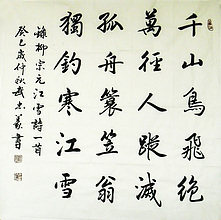 千山鳥飛絕
萬徑人蹤滅
孤舟簑笠翁
獨釣寒江雪
錄柳宗元江雪詩一首
癸巳歲仲秋武義書